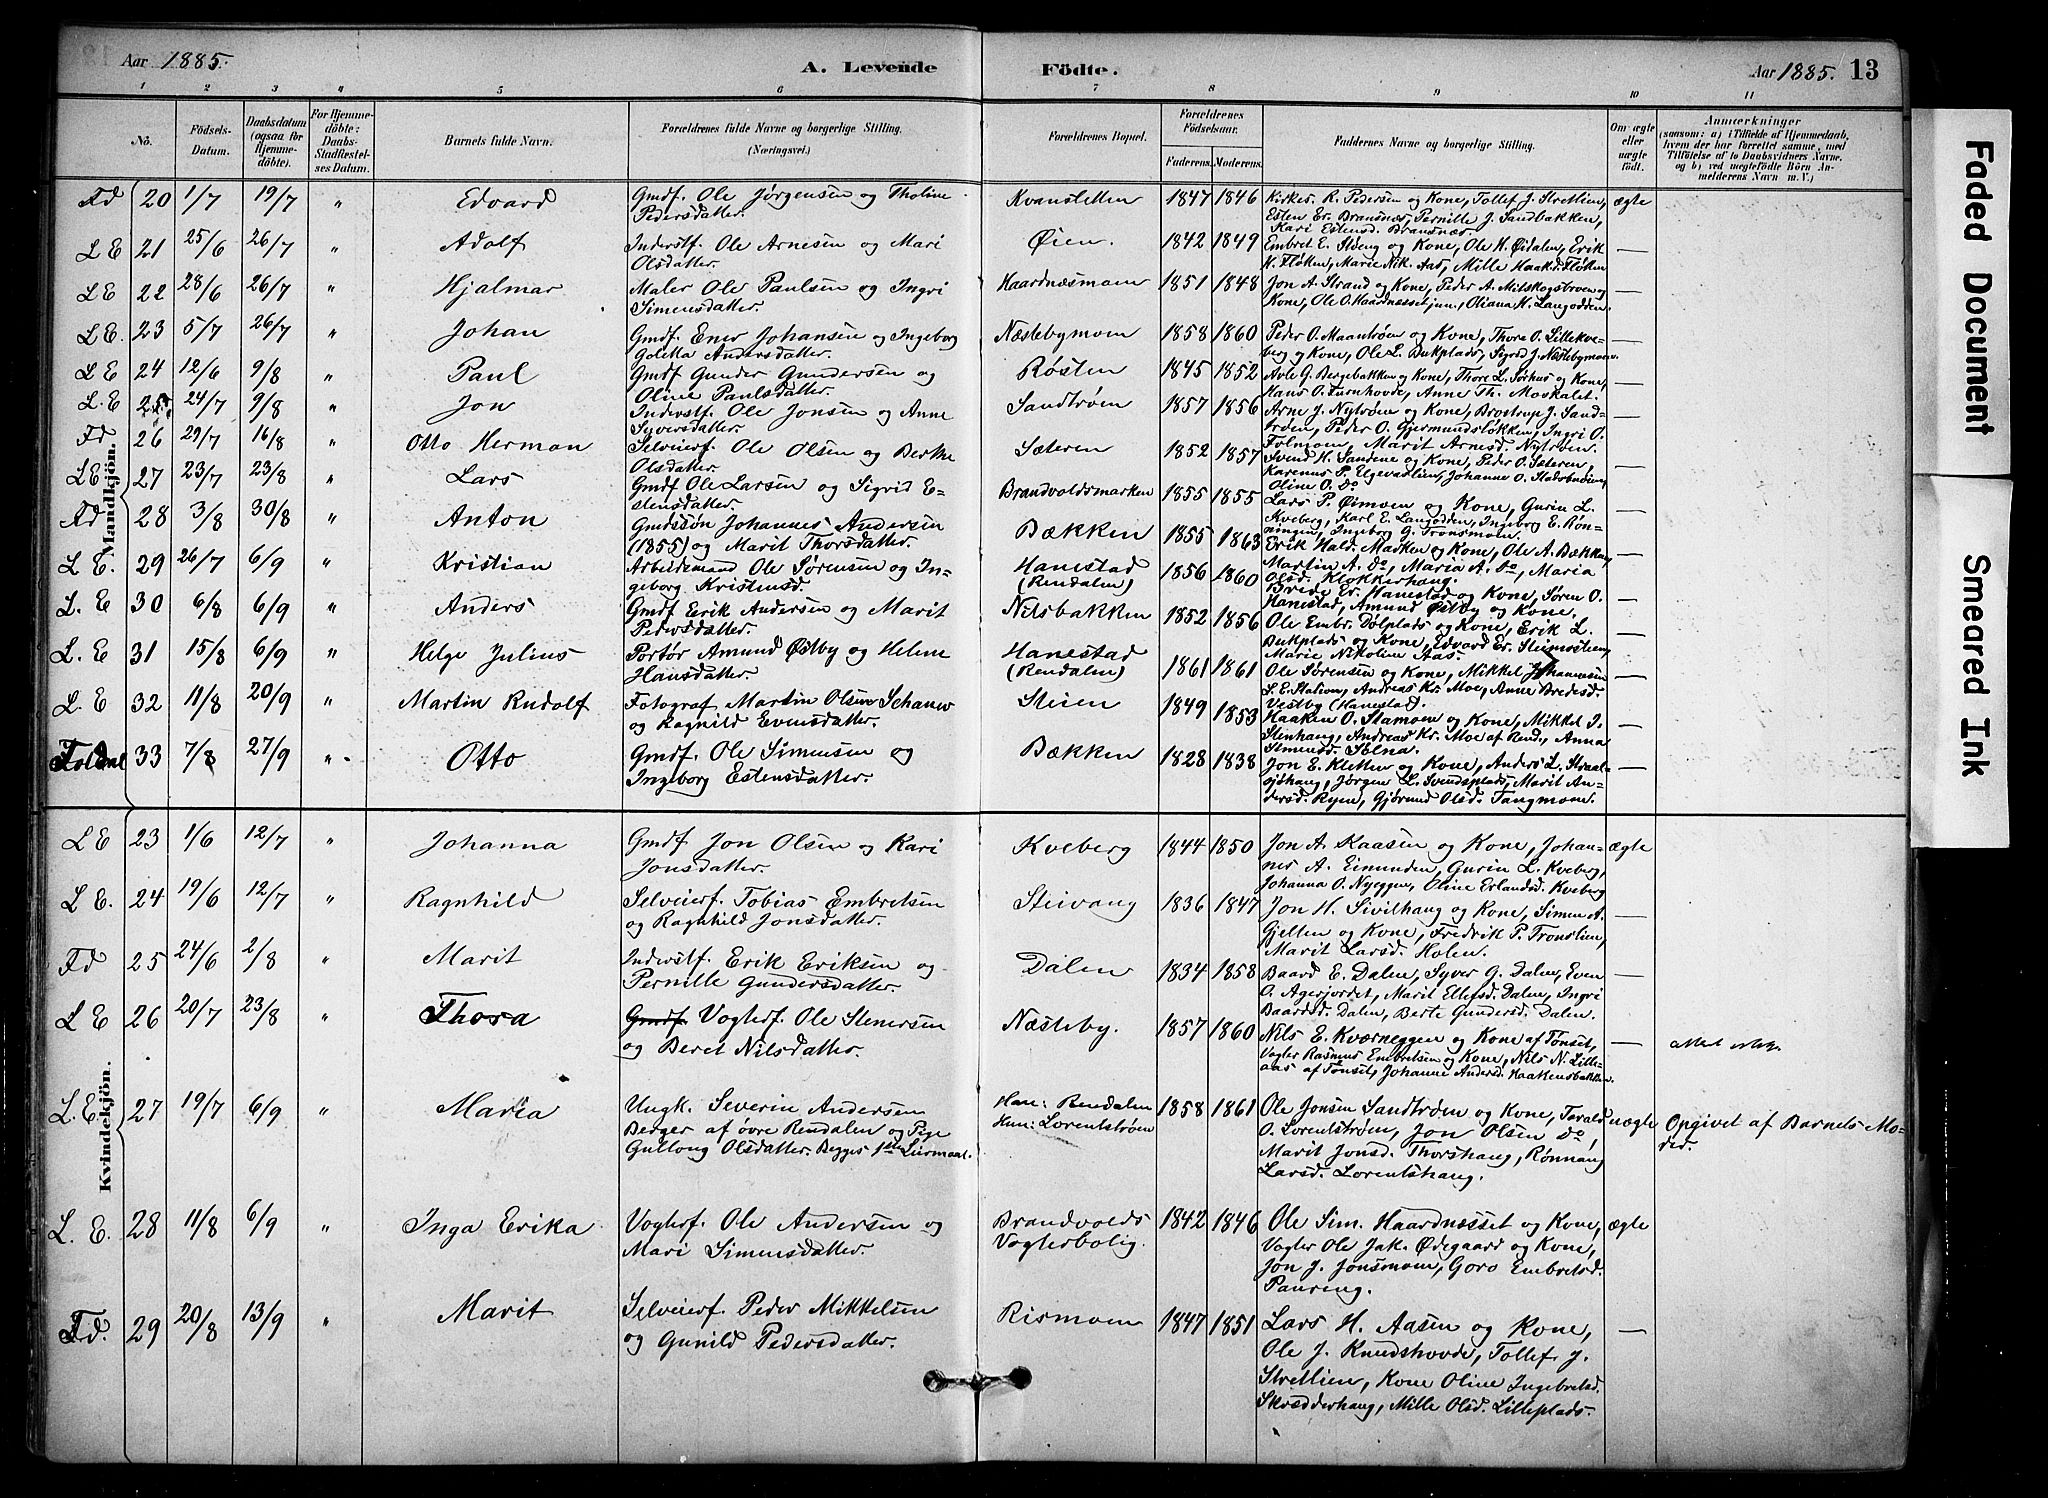 Aar 1885.
A. Levende
Födte.
Aar 1885. 13
1 2 3 4 5 6 7 8 9 10 11
No.
Födsels-Datum.
Daabsdatum (ogsaa for Hjemmedöbte).
For Hjemmedöbte: Daabs-Stadfæstelses Datum.
Barnets fulde Navn.
Forældrenes fulde Navne og borgerlige Stilling.
(Næringsvei.)
Forældrenes Bopæl.
Forældrenes Födselsaar.
Faderens. Moderens.
Faddernes Navne og borgerlige Stilling.
Om ægte eller uægte født.
Anmærkninger
(saasom: a) i Tilfælde af Hjemmedaab, hvem der har forrettet samme, med Tilföielse af to Daabsvidners Navne, og b) ved uægtefödte Börn Anmelderens Navn m. V.)
Mandkjön.
Fd 20 1/7 19/7 " Edvard Gmdf. Ole Jørgensen og Tholine Pedersdatter. Kvanstellen 1847 1846 Kirkes. R. Pedersen og Kone, Tollef J. Stretlien, Esten Er. Brandnæs, Pernille J. Sandbakken, Kari Estensd. Brandsnæs. ægte
L E 21 25/6 26/7 " Adolf Inderstf. Ole Arnesen og Mari Olsdatter. Øien. 1842 1849 Embret E. Støeng og Kone, Ole K. Øidalen, Erik K. Fløken, Marie Nik. Aas, Mille Haakd. Fløken —
L E 22 28/6 26/7 " Hjalmar Maler Ole Paulsen og Ingri Simensdatter. Haardnæsmoen 1851 1848 Jon A. Strand og Kone, Peder A. Mitskogsbroen og Kone, Ole O. Haardnæsset jun., Oliana H. Langodden. —
L E. 23 5/7 26/7 " Johan Gmdf. Ener Johansen og Ingeborg Goletta Andersdatter. Næstebymoen 1858 1860 Peder O. Maanstrøm og Kone, Thore O. Lillekveberg og Kone, Ole L. Bukplads, Sigrid J. Næstebymoen. —
L E 24 12/6 9/8 " Paul Gmdf Gunder Gundersen og Oline Paulsdatter. Røsten 1845 1852 Avle G. Bergebakken og Kone, Thore L. Sørhus og Kone, Hans O. Furuhovde, Anne Th. Moskalet. —
L. E 25 24/7 9/8 " Jon Inderstf. Ole Jonsen og Anne Syversdatter. Sandtrøen 1857 1856 Arne J. Nytrøen og Kone, Brostrup J. Sandtrøen, Peder O. Gjermundsløkken, Ingri O. Folmoen, Marit Arnesd. Nytrøen. —
Fd 26 29/7 16/8 " Otto Herman Selveierf. Ole Olsen og Berthe Olsdatter. Sæteren 1852 1857 Svend H. Sandene og Kone, Peder O. Sæteren, Karenus P. Elgevadlien, Johanne O. Stadsbuøien, Oline O. Do —
L E 27 23/7 23/8 " Lars Gmdf Ole Larsen og Sigrid Estensdatter. Brandvoldsmarken 1855 1855 Lars P. Øimoen og Kone, Gurin L. Kveberg, Karl E. Langodden, Ingeborg E. Rønningen, Ingeborg G. Tronsmoen. —
Fd 28 3/8 30/8 " Anton Gmdssøn Johannes Andersen (1855) og Marit Thorsdatter. Bækken 1855 1863 Erik Hald. Marken og Kone, Ole A. Bækken, Martin A. Do, Maria A. Do, Maria Olsd. Klokkerhaug. —
L E. 29 26/7 6/9 " Kristian Arbeidsmand Ole Sørensen og Ingeborg Kristensd. Hanestad (Rendalen) 1856 1860 Brede Er. Hanestad og Kone, Søren O. Hanestad, Amund Østby og Kone. —
L. E 30 6/8 6/9 " Anders Gmdf Erik Andersen og Marit Pedersdatter. Nilsbakken 1852 1856 Ole Embr. Dølplads og Kone, Erik L. Bukplads og Kone, Edvard Er. Steimostuen, Marie Nikoline Aas. —
L. E 31 15/8 6/9 " Helge Julius Portør Amund Østby og Helene Hansdatter. Hanestad (Rendalen) 1861 1861 Ole Sørensen og Kone, Mikkel Johannesen L. E. Station, Andreas Kr. Moe, Anne Bredesd. Vestby (Hanestad). —
L. E 32 11/8 20/9 " Martin Rudolf Fotograf Martin Olsen Schanse og Ragnild Evensdatter. Steien 1849 1853 Haaken O. Stamoen og Kone, Mikkel I. Stenhaug, Andreas Kr. Moe af Rend., Anna Simensd. Sølna. —
Foldal 33 7/8 27/9 " Otto Gmdf. Ole Simensen og Ingeborg Estensdatter. Bækken 1828 1838 Jon E. Kletten og Kone, Anders L. Straalsjøhaug, Jørgen L. Svendsplads, Marit Andersd. Ryen, Gjørund Olsd. Tangmoen. —
Kvindekjön.
L E 23 1/6 12/7 " Johanna Gmdf Jon Olsen og Kari Jonsdatter. Kveberg 1844 1850 Jon A. Kaasen og Kone, Johannes A. Eimunden, Gurin L. Kveberg, Johanna O. Nyeggen, Oline Erlandsd. Kveberg ægte
L E. 24 19/6 12/7 " Ragnhild Selveierf. Tobias Embretsen og Ragnhild Jonsdatter. Steivang 1836 1847 Jon H. Sivilhaug og Kone, Simen A. Gjelten og Kone, Fredrik P. Tronslien, Marit Larsd. Holen. —
Fd 25 24/6 2/8 " Marit Inderstf. Erik Eriksen og Pernille Gundersdatter. Dalen 1834 1858 Baard E. Dalen, Syver G. Dalen, Even O. Agerjordet, Marit Ellefsd. Dalen, Ingri Baardsd. Dalen, Berte Gundersd. Dalen. —
L E 26 20/7 23/8 " Thora Gmdf. Vogterf. Ole Stenersen og Beret Nilsdatter. Næsteby. 1857 1860 Nils E. Kværneggen og Kone af Tønset, Vogter Rasmus Embretsen og Kone, Nils N. Lilleaas af Tønset, Johanne Andersd. Haakensbakken. —
L. E 27 19/7 6/9 " Maria Ungk. Severin Andersen Berger af øvre Rendalen og Pige Gullaug Olsdatter. Begges 1ste Leiermaal. Han: Rendalen Hun: Lorentstrøen 1858 1861 Ole Jonsen Sandtrøen og Kone, Tarald O. Lorentstrøen, Jon Olsen Do, Marit Jonsd. Thorshaug, Rønnaug Larsd. Lorentshaug. uægte Opgivet af Barnets Moder.
L. E. 28 11/8 6/9 " Inga Erika Vogterf. Ole Andersen og Mari Simensdatter. Brandvolds Vogterbolig. 1842 1846 Ole Sim. Haardnæsset og Kone, Vogter Ole Jak. Ødegaard og Kone, Jon J. Jonsmoen, Goro Embretsd. Panring. ægte
Fd. 29 20/8 13/9 " Marit Selveierf. Peder Mikkelsen og Gunild Pedersdatter. Rismoen 1847 1851 Lars H. Aasen og Kone, Ole J. Knudshovde, Tollef J. Stretlien, Kone Oline Ingebretsd. Skrædderhaug, Mille Olsd. Lilleplads. —
Faded Document
Smeared Ink